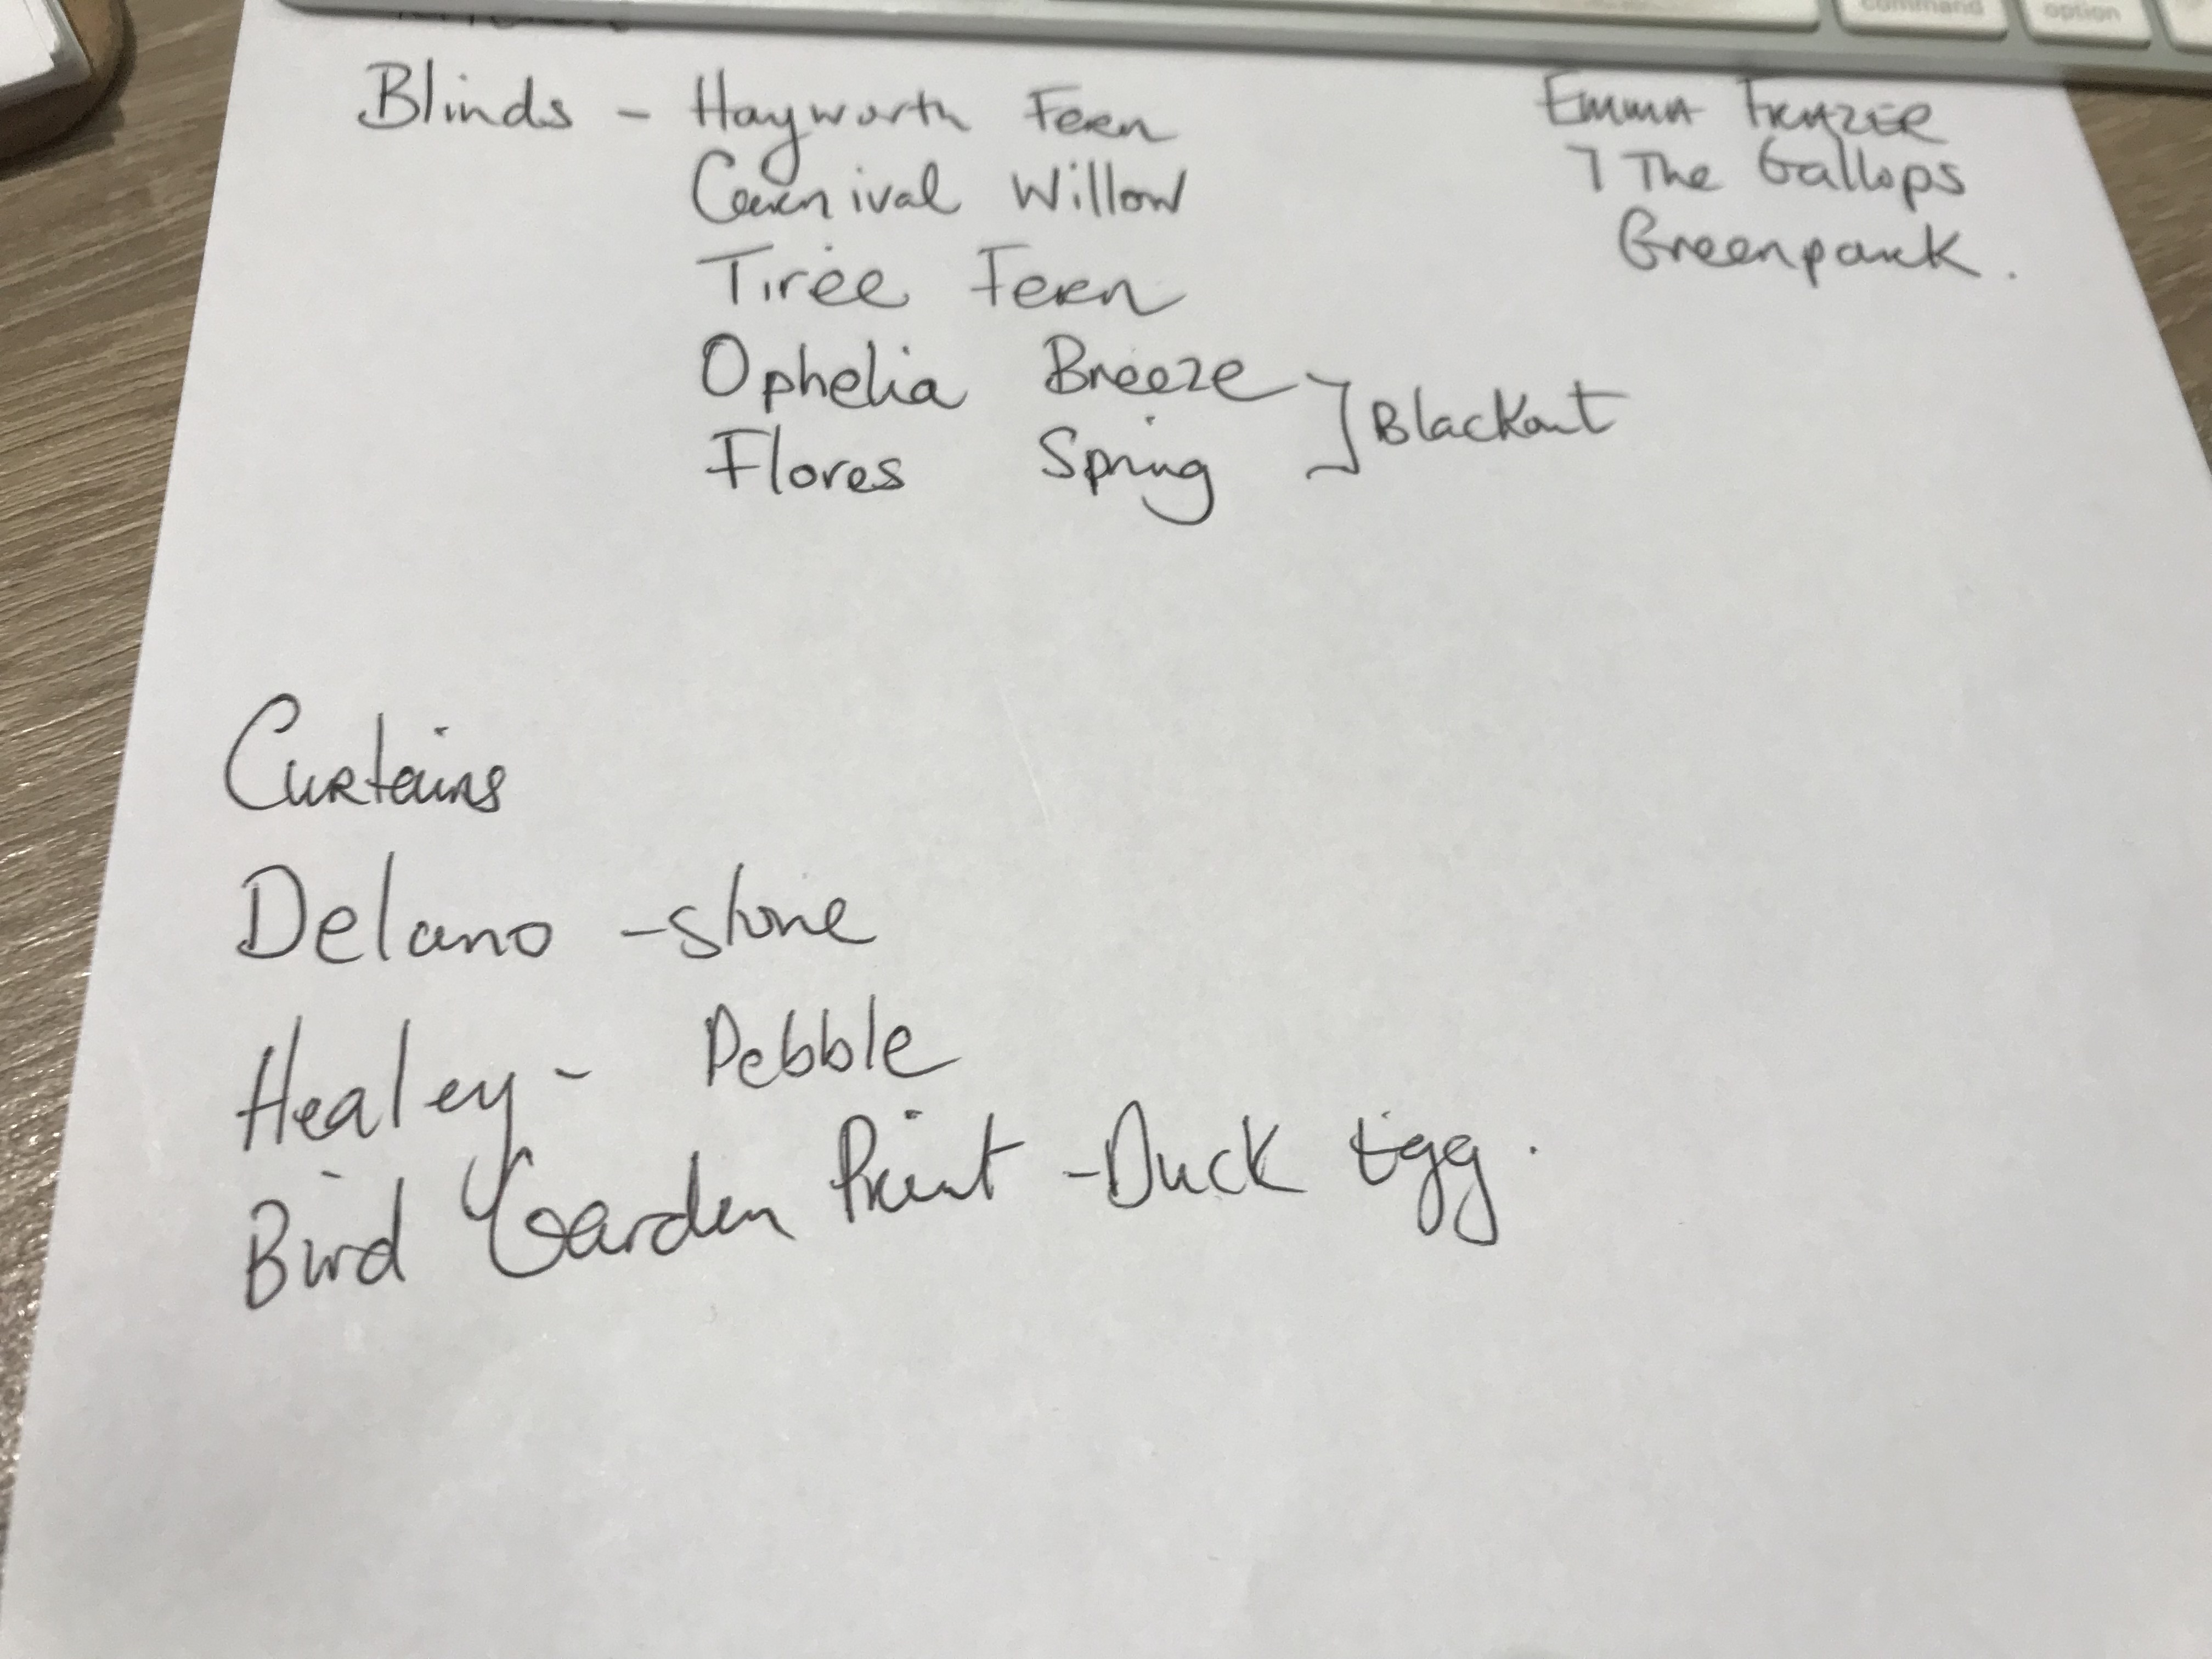 command option
Blinds - Hayworth Fern
Carnival Willow
Tiree Fern
Ophelia Breeze ] Blackout
Flores Spring
EMMA FRAZER
7 The Gallops
Greenpark.
Curtains
Delano - stone
Healey - Pebble
Bird Garden Print - Duck Egg.